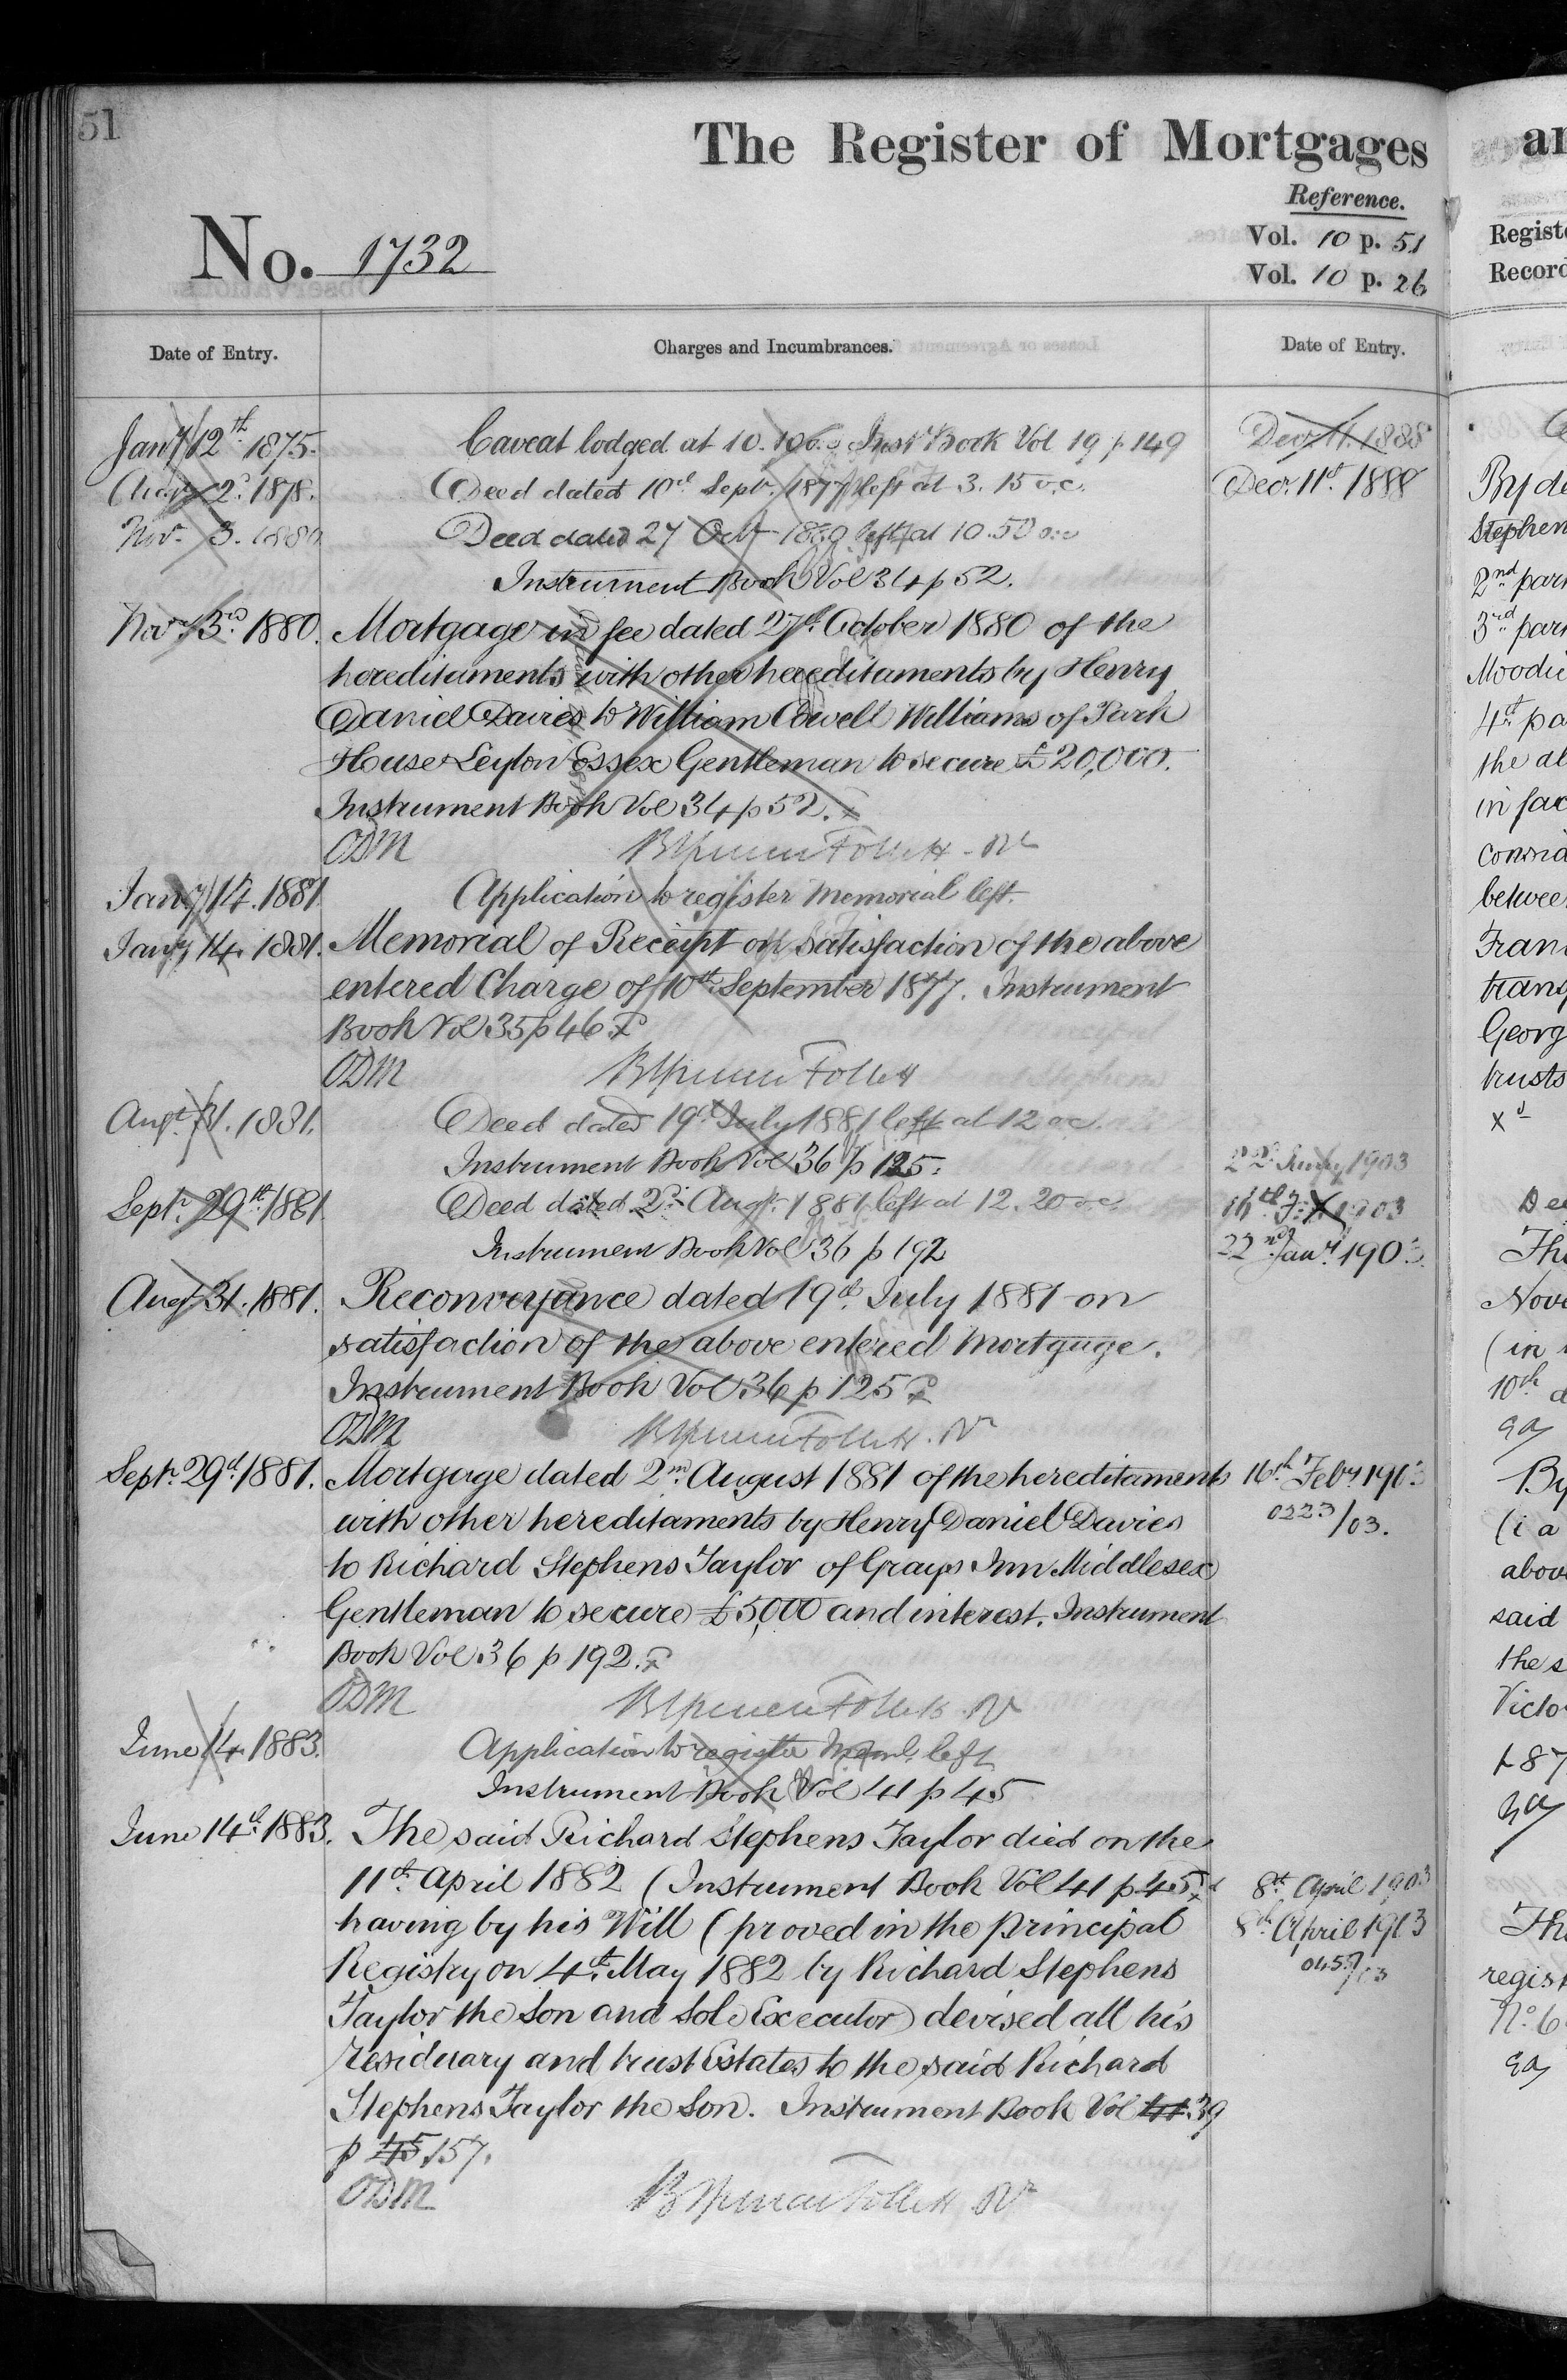 51
The Register of Mortgages
Reference.
No. 1732
Vol. 10 p. 51
Vol. 10 p. 26
Date of Entry.
Charges and Incumbrances.
Date of Entry.
Jany 12th 1875.
Caveat lodged at 10. Inst Book Vol 19 p 149
Decr 11. 1888
Augt 2d. 1878.
Deed dated 10th Sept. 1877 left at 3. 15 o.c.
Decr. 11th. 1888
Novr. 3. 1880
Deed dated 27 Octr 1880 left at 10.50 o.c
Instrument Book Vol 34 p 52.
Novr 3rd. 1880.
Mortgage in fee dated 27th October 1880 of the
hereditaments with other hereditaments by Henry
Daniel Davies to William Cowell Williams of Park
House Leyton Essex Gentleman to secure £20,000.
Instrument Book Vol 34 p 52.
ODM
B Spencer Follett
Jany 14. 1881
Application to register Memorial left.
Jany 14. 1881.
Memorial of Receipt on satisfaction of the above
entered Charge of 10th September 1877. Instrument
Book Vol 35 p 46
ODM
B Spencer Follett
Augt. 31. 1881.
Deed dated 19th July 1881 left at 12 o.c.
Instrument Book Vol 36 p 125.
22d Jany 1903
Septr. 29th 1881
Deed dated 2d Augt. 1881 left at 12. 20 o.c.
16th Feb 1903
Instrument Book Vol 36 p 192
22nd Jany 1903
Augt 31. 1881.
Reconveyance dated 19th July 1881 on
satisfaction of the above entered Mortgage.
Instrument Book Vol 36 p 125
ODM
B Spencer Follett
Septr 29th 1881.
Mortgage dated 2nd August 1881 of the hereditaments
16th Feby 1903
with other hereditaments by Henry Daniel Davies
0223/03.
to Richard Stephens Taylor of Grays Inn Middlesex
Gentleman to secure £5,000 and interest. Instrument
Book Vol 36 p 192.
ODM
B Spencer Follett
June 14. 1883.
Application to register Meml. left
Instrument Book Vol 41 p 45
June 14th 1883.
The said Richard Stephens Taylor died on the
11th April 1882 (Instrument Book Vol 41 p 45)
8th April 1903
having by his Will (proved in the principal
8th April 1903
Registry on 4th May 1882 by Richard Stephens
Taylor the Son and Sole Executor) devised all his
residuary and trust Estates to the said Richard
Stephens Taylor the Son. Instrument Book Vol 41 39
p 45 157.
ODM
B Spencer Follett